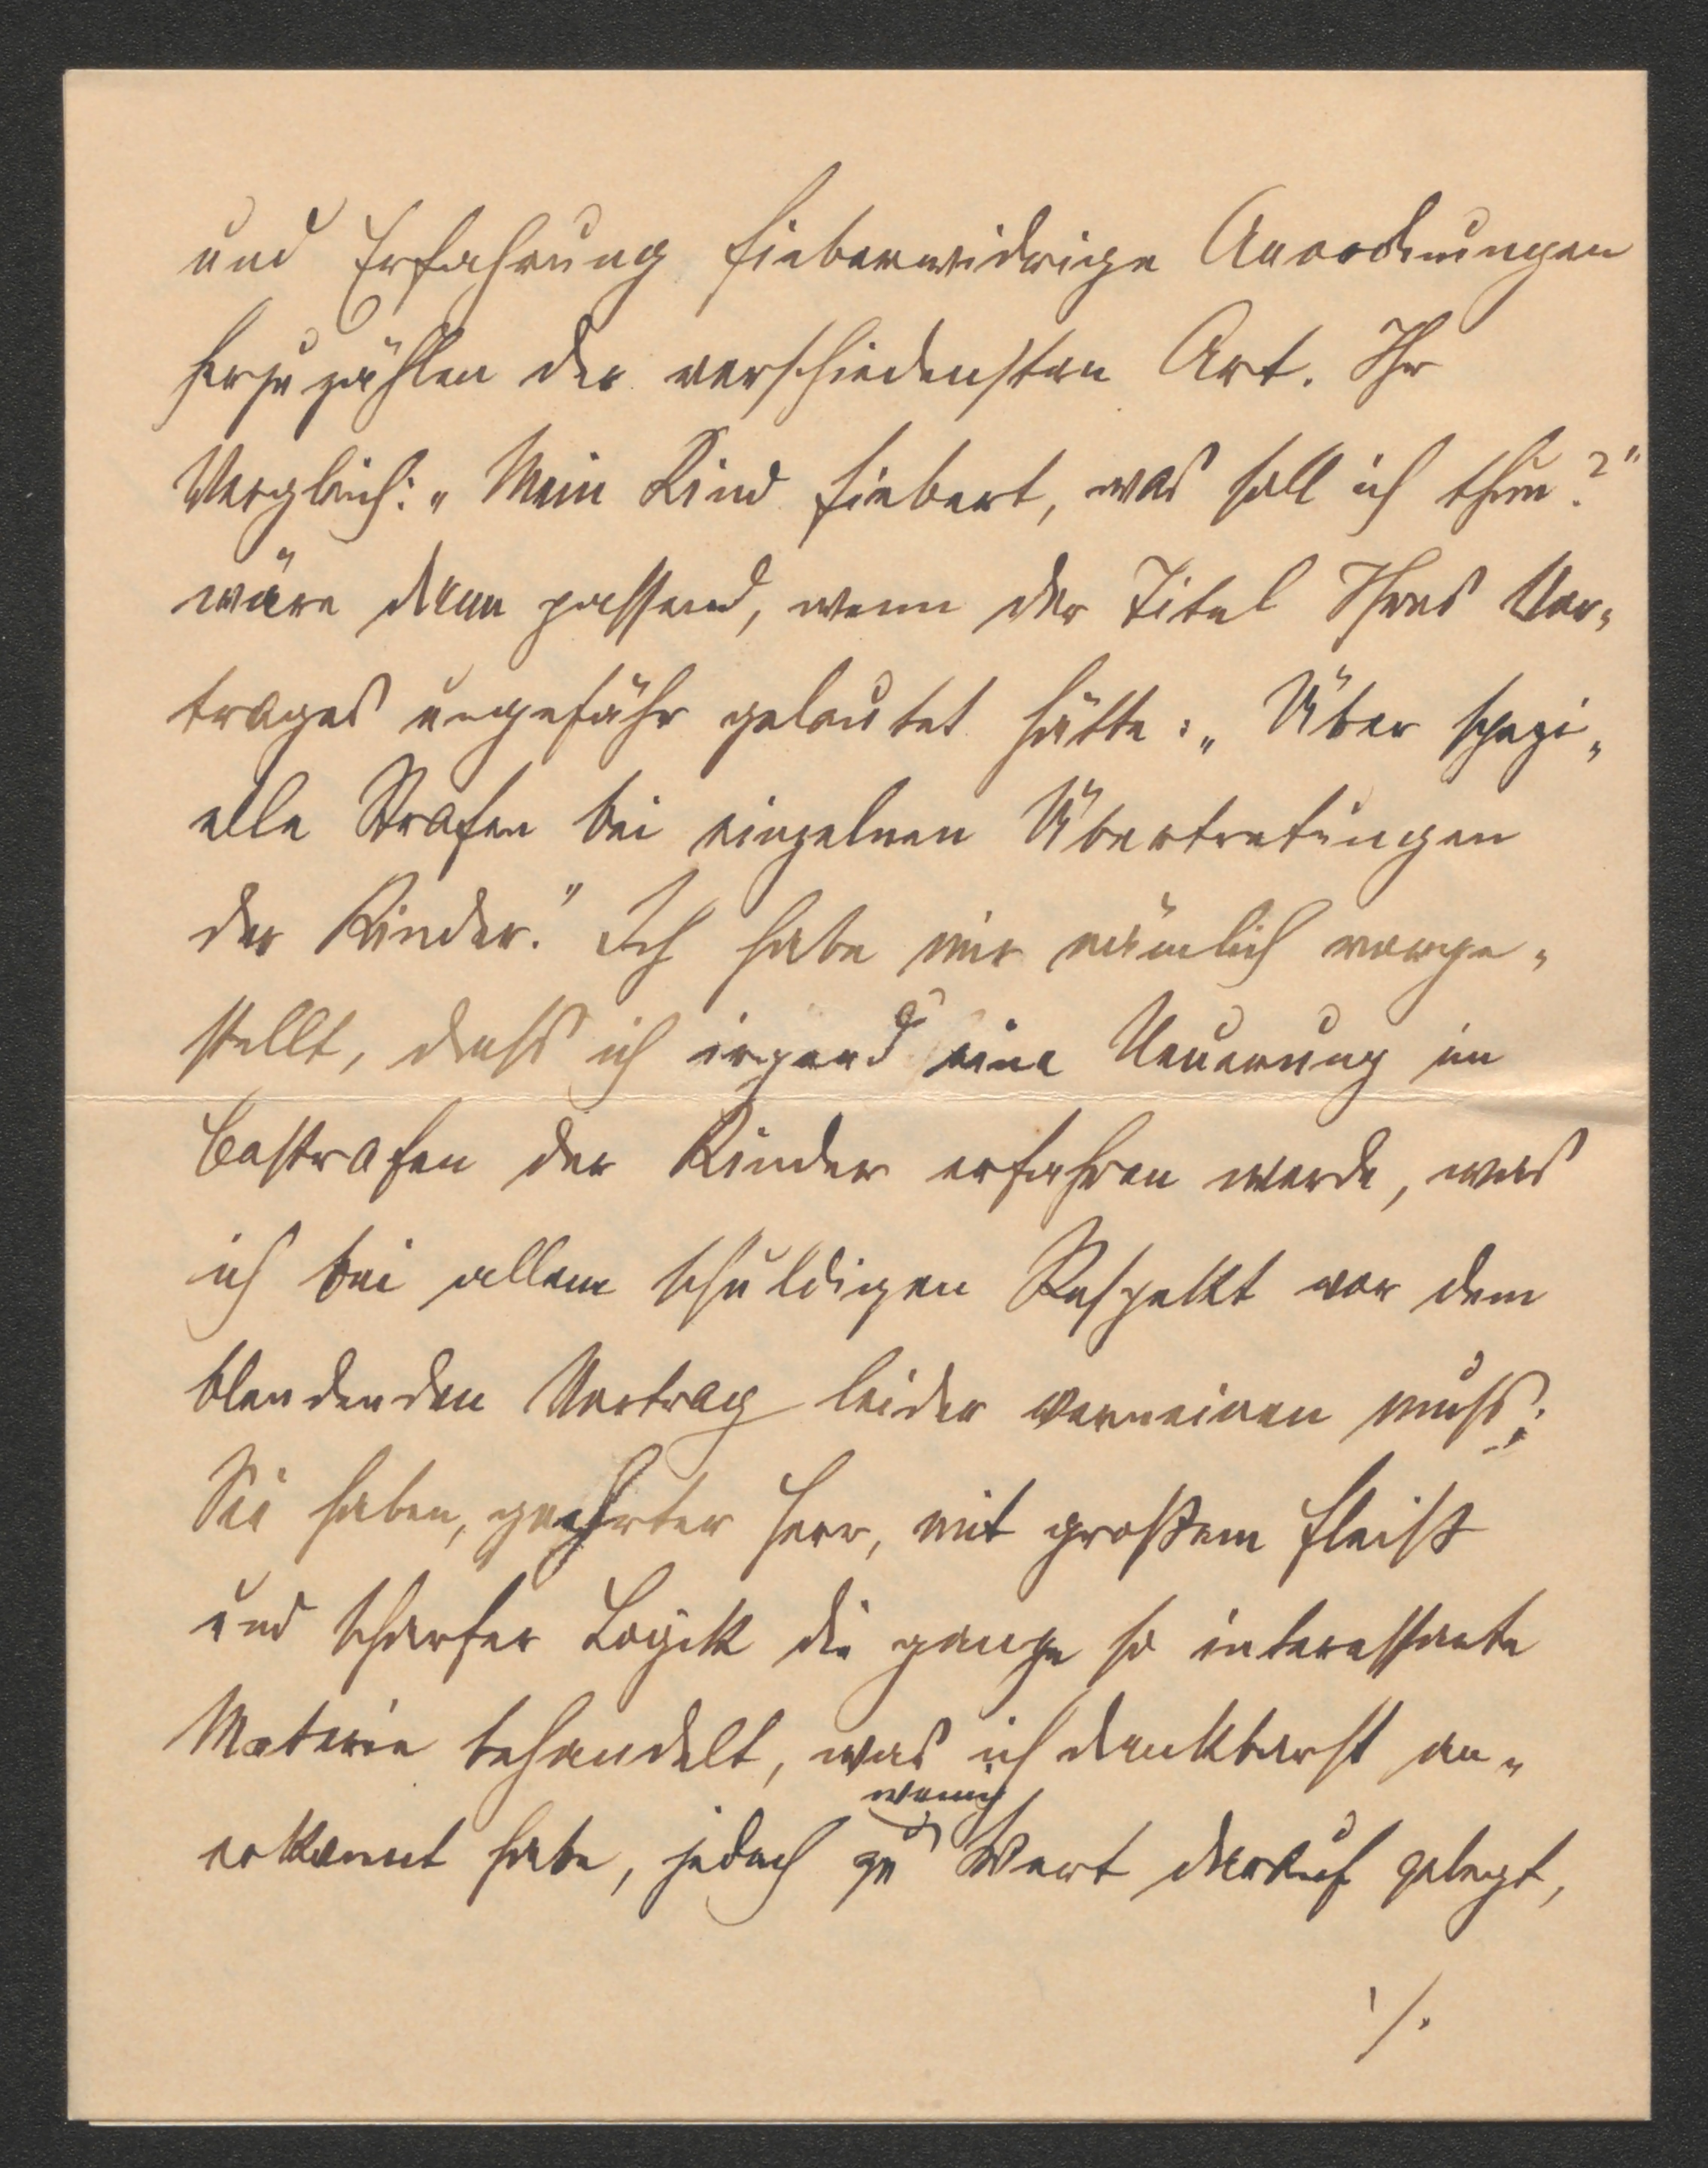 und Erfahrung fieberwidrige Anordnungen
herzuzählen der verschiedensten Art. Ihr
Vergleich: „Mein Kind fiebert, was soll ich thun?"
wäre dann passend, wenn der Titel Ihres Vor-
trages ungefähr gelautet hätte: „Über spezi-
elle Strafen bei einzelnen Übertretungen
der Kinder." Ich habe mir nämlich vorge-
stellt, dass ich irgend eine Neuerung im
Bestrafen der Kinder erfahren werde, was
ich bei allem schuldigen Respekt vor dem
blendenden Vortrag leider verneinen muss;
Sie haben, geehrter Herr, mit großem Fleiß
und scharfer Logik die ganze so interessante
Materie behandelt, was ich dankbarst an-
erkannt habe, jedoch zu wenig Wert darauf gelegt,
./.